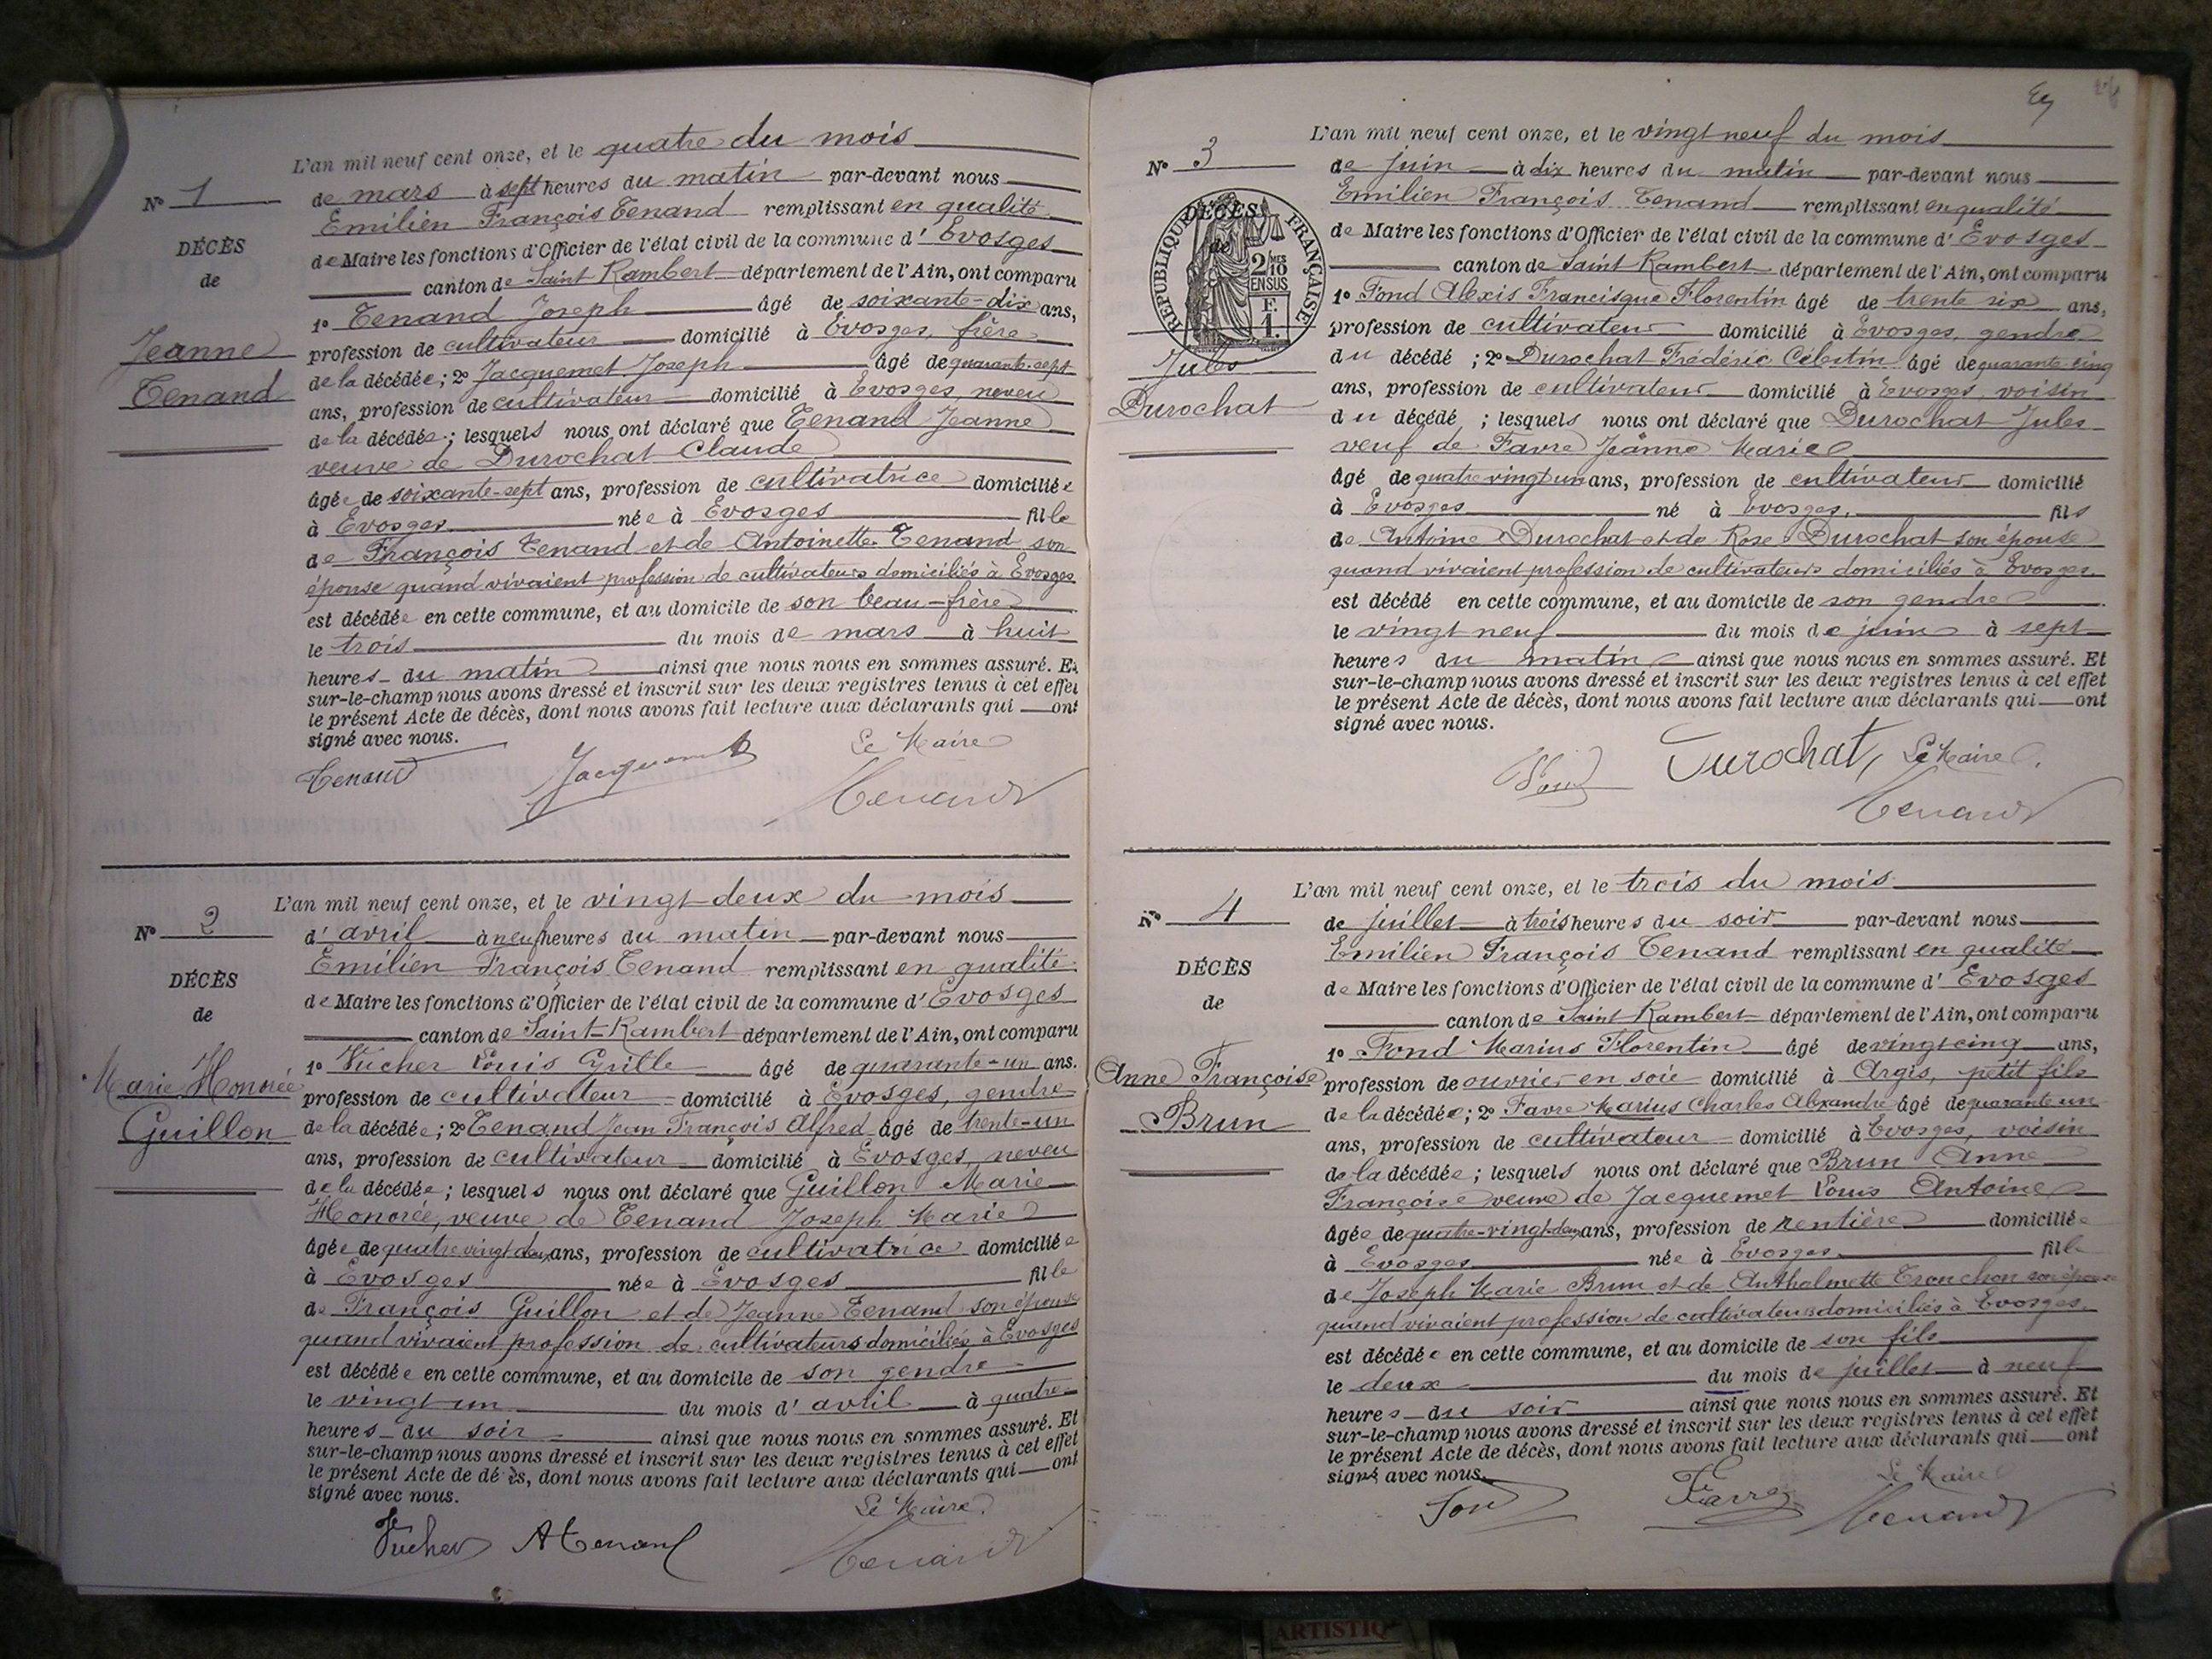 L'an mil neuf cent onze, et le quatre du mois
N° 1
de mars à sept heures du matin par-devant nous
Emilien François Tenand remplissant en qualité
DÉCÈS
de Maire les fonctions d'Officier de l'état civil de la commune d'Evosges
de
canton de Saint Rambert département de l'Ain, ont comparu
1° Tenand Joseph âgé de soixante-dix ans,
Jeanne
profession de cultivateur domicilié à Evosges, frère
de la décédée; 2° Jacquemet Joseph âgé de quarante-sept
Tenand
ans, profession de cultivateur domicilié à Evosges, neveu
de la décédée; lesquels nous ont déclaré que Tenand Jeanne
veuve de Durochat Claude
âgée de soixante-sept ans, profession de cultivatrice domiciliée
à Evosges née à Evosges fille
de François Tenand et de Antoinette Tenand son
épouse quand vivaient profession de cultivateurs domiciliés à Evosges
est décédée en cette commune, et au domicile de son beau-frère
le trois du mois de mars à huit
heures du matin ainsi que nous nous en sommes assuré. Et
sur-le-champ nous avons dressé et inscrit sur les deux registres tenus à cet effet
le présent Acte de décès, dont nous avons fait lecture aux déclarants qui ont
signé avec nous.
Le Maire
Tenand Jacquemet Tenand
L'an mil neuf cent onze, et le vingt-deux du mois
N° 2
d'avril à neuf heures du matin par-devant nous
Emilien François Tenand remplissant en qualité
DÉCÈS
de Maire les fonctions d'Officier de l'état civil de la commune d'Evosges
de
canton de Saint-Rambert département de l'Ain, ont comparu
1° Vucher Louis Grille âgé de quarante-un ans.
Marie Honorée
profession de cultivateur domicilié à Evosges, gendre
Guillon
de la décédée; 2° Tenand Jean François Alfred âgé de trente-un
ans, profession de cultivateur domicilié à Evosges, neveu
de la décédée; lesquels nous ont déclaré que Guillon Marie
Honorée, veuve de Tenand Joseph Marie
âgée de quatre vingt deux ans, profession de cultivatrice domiciliée
à Evosges née à Evosges fille
de François Guillon et de Jeanne Tenand son épouse
quand vivaient profession de cultivateurs domiciliés à Evosges
est décédée en cette commune, et au domicile de son gendre
le vingt un du mois d'avril à quatre
heures du soir ainsi que nous nous en sommes assuré. Et
sur-le-champ nous avons dressé et inscrit sur les deux registres tenus à cet effet
le présent Acte de décès, dont nous avons fait lecture aux déclarants qui ont
signé avec nous.
Le Maire
Vucher A Tenand Tenand
L'an mil neuf cent onze, et le vingt neuf du mois
N° 3
de juin à dix heures du matin par-devant nous
Emilien François Tenand remplissant en qualité
DÉCÈS
de
RÉPUBLIQUE FRANÇAISE
2/10 MES
EN SUS
F.
1.
de Maire les fonctions d'Officier de l'état civil de la commune d'Evosges
canton de Saint Rambert département de l'Ain, ont comparu
1° Fond Alexis Francisque Florentin âgé de trente six ans,
profession de cultivateur domicilié à Evosges, gendre
Jules
du décédé ; 2° Durochat Frédéric Célestin âgé de quarante cinq
ans, profession de cultivateur domicilié à Evosges, voisin
Durochat
du décédé ; lesquels nous ont déclaré que Durochat Jules
veuf de Favre Jeanne Marie
âgé de quatre vingt un ans, profession de cultivateur domicilié
à Evosges né à Evosges, fils
de Antoine Durochat et de Rose Durochat son épouse
quand vivaient profession de cultivateurs domiciliés à Evosges
est décédé en cette commune, et au domicile de son gendre
le vingt neuf du mois de juin à sept
heures du matin ainsi que nous nous en sommes assuré. Et
sur-le-champ nous avons dressé et inscrit sur les deux registres tenus à cet effet
le présent Acte de décès, dont nous avons fait lecture aux déclarants qui ont
signé avec nous.
Fond Durochat, Le Maire
Tenand
L'an mil neuf cent onze, et le trois du mois
N° 4
de juillet à trois heures du soir par-devant nous
Emilien François Tenand remplissant en qualité
DÉCÈS
de Maire les fonctions d'Officier de l'état civil de la commune d'Evosges
de
canton de Saint Rambert département de l'Ain, ont comparu
1° Fond Marius Florentin âgé de vingt cinq ans,
Anne Françoise
profession de ouvrier en soie domicilié à Argis, petit fils
Brun
de la décédée; 2° Favre Marius Charles Alexandre âgé de quarante un
ans, profession de cultivateur domicilié à Evosges, voisin
de la décédée; lesquels nous ont déclaré que Brun Anne
Françoise veuve de Jacquemet Louis Antoine
âgée de quatre-vingt-deux ans, profession de rentière domiciliée
à Evosges née à Evosges fille
de Joseph Marie Brun et de Anthelmette Tronchon son épouse
quand vivaient profession de cultivateurs domiciliés à Evosges.
est décédée en cette commune, et au domicile de son fils
le deux du mois de juillet à neuf
heures du soir ainsi que nous nous en sommes assuré. Et
sur-le-champ nous avons dressé et inscrit sur les deux registres tenus à cet effet
le présent Acte de décès, dont nous avons fait lecture aux déclarants qui ont
signé avec nous.
Le Maire
Fond Favre Tenand
ARTISTIQ